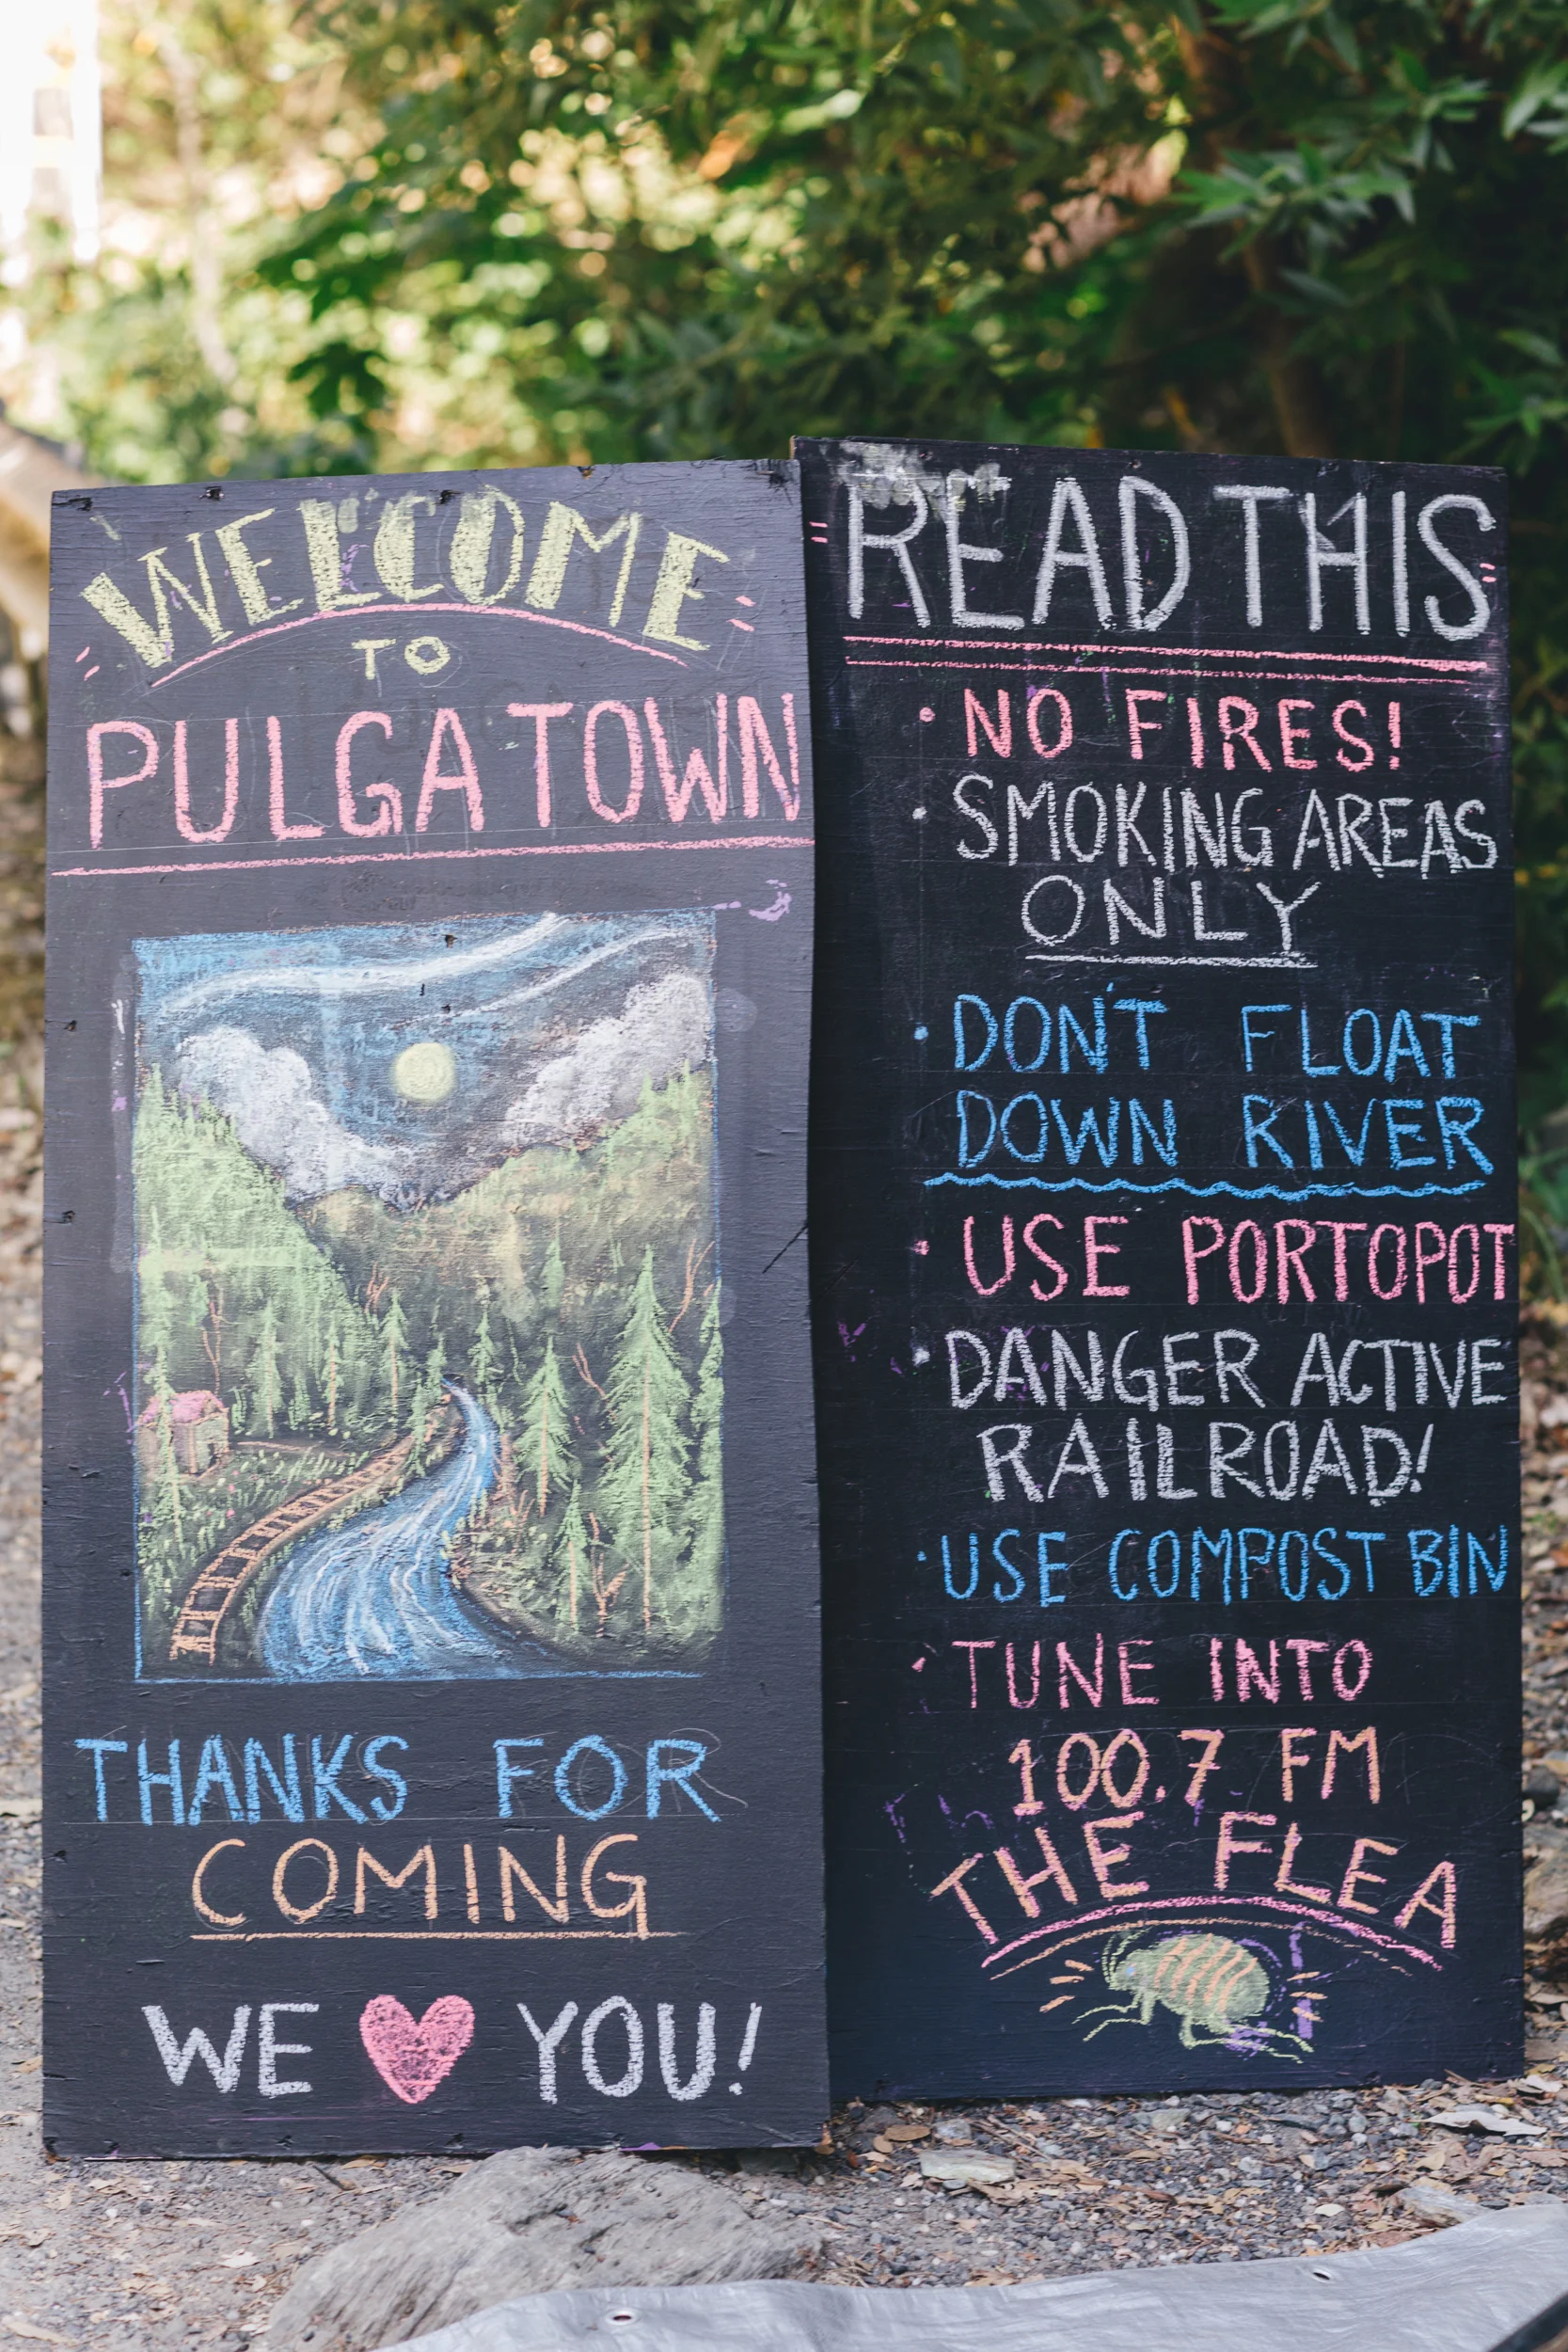 WELCOME
TO
PULGA TOWN
THANKS FOR
COMING
WE ❤ YOU!
READ THIS
• NO FIRES!
• SMOKING AREAS
ONLY
• DON'T FLOAT
DOWN RIVER
• USE PORTOPOT
• DANGER ACTIVE
RAILROAD!
• USE COMPOST BIN
• TUNE INTO
100.7 FM
THE FLEA